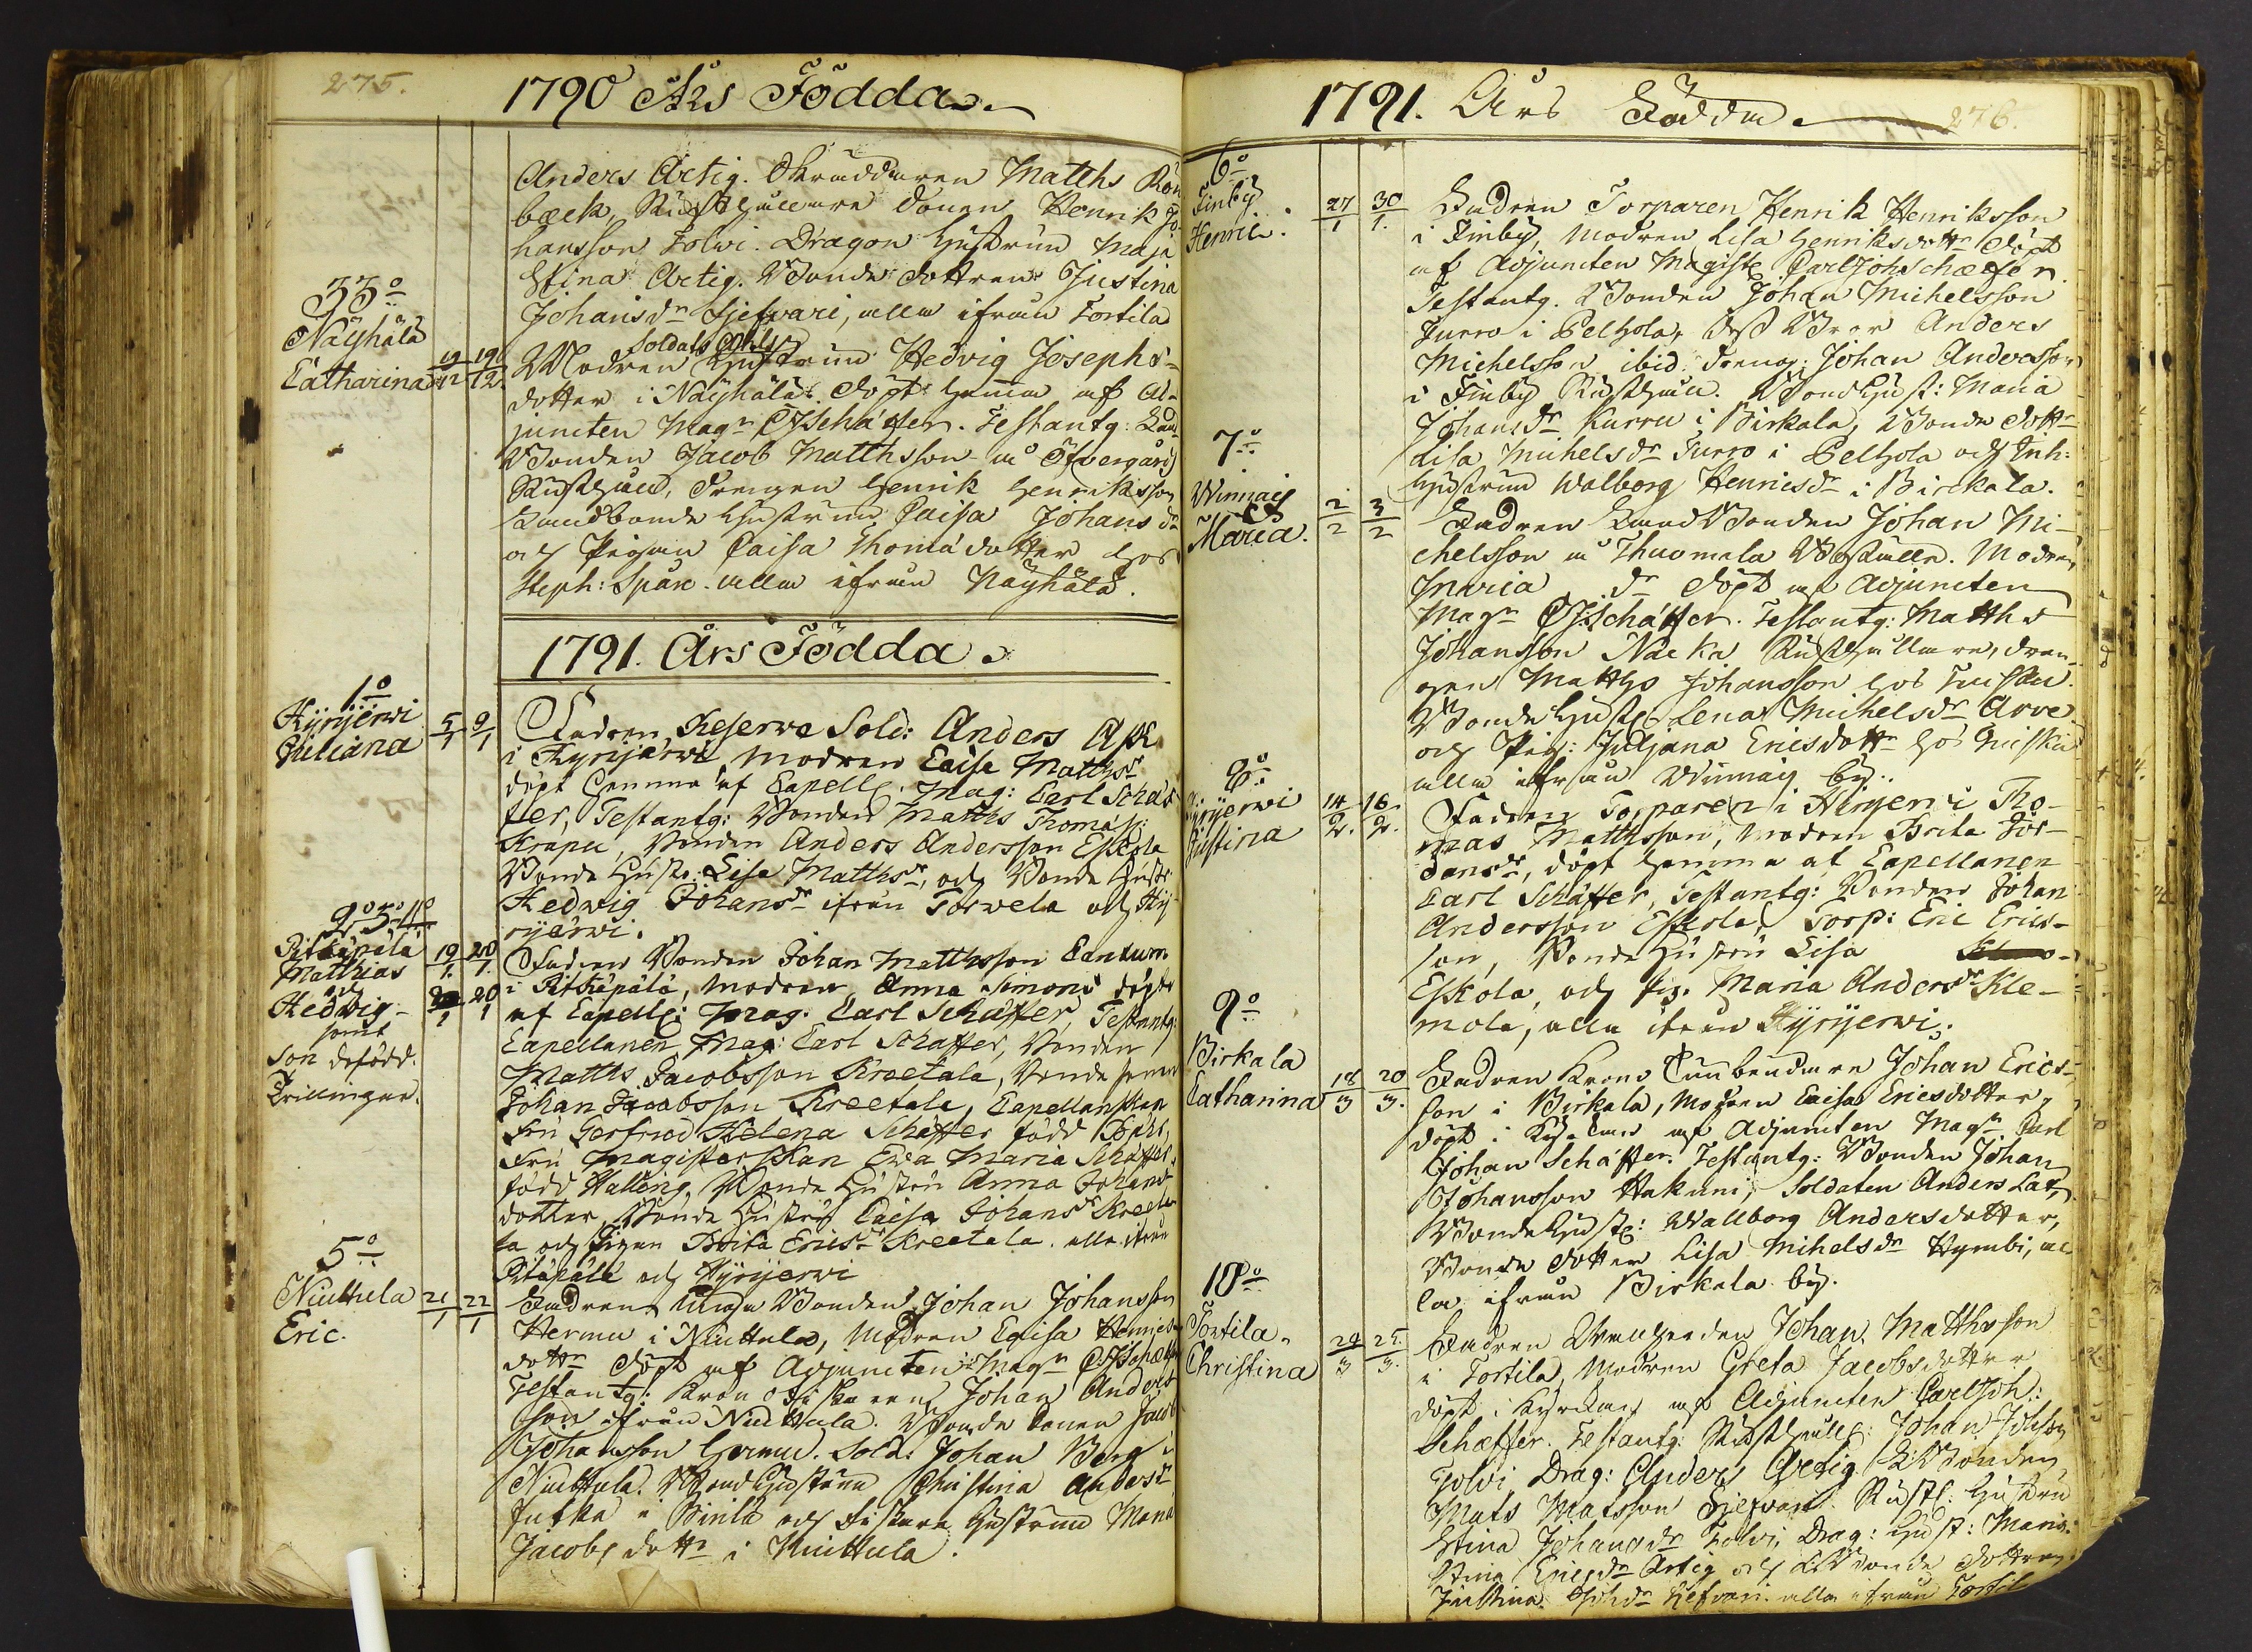 275.
1790 Års Födda
Anders Artig. Skräddaren Matths Rön
bæck, Rusthållare Sonen Henrik Jo
hansson Tolvi. Dragon Hustrun Maja
Stina Artig. Bonde dottren Justina
Johansdr Sjefvari, alla ifrån Tortila
33o
Näyhälä
Catharina
19/12 19/12
Soldats
Modren Hustrun Hedvig Josephs-
dotter i Näyhälä. döpt hemma af Ad-
juncten Magr CJSchäffer. Testantg: Land
Bonden Jacob Matthsson å Öfvergårds
Rusthåll, Drengen Henrik Henriksson
Landbonde Hustrun Caisa Johansdr
och Pigan Caisa Thomädotter hos
Steph: Spåre. alla ifrån Näyhälä.
1791. Års Födda
1o
Kyrijerwi
Juliana
5/1 9/1
Fadren Reserve Sold: Anders Ask
i Kyrijärwi, Modren Caisa Matthsdr
döpt hemma af Capell: Mag: Carl Schäf
fer, Testantg: Bonden Matths Thomäss:
Krapu, Bonden Anders Andersson Eskola
Bonde Hustr: Lisa Matthsdr, och Bonde Hustr
Hedwig Johansdr ifrån Torwela och Ky-
rijerwi.
2o 3o 4o
Pitkäpälä
Mathias
och
Hedvig
samt
Son defödd.
Trillingar.
19/1. 20/1.
20/1
Fadren Bonden Johan Matthsson Canturi
i Pitkäpälä, Modren Anna Simons döpte
af Capell: Mag. Carl Schäffer, Testantg:
Capellanen Mag: Carl Schäffer, Bonden
Matths Jacobsson Kreetala, Bonde sonen
Johan Jacobsson Kreetala, Capellanskan
Fru Gertrud Helena Schäffer född
Fru Magisterskan Ewa Maria Schäffer,
född Halling, Bonde Hustru Anna Johans
dotter, Bonde Hustru Caisa Johansdr Kreeta
la och Pigan Brita Ericsdr Kreetala. alla ifrån
Pitkäpälä och Kyrijerwi
5o
Niuttula
Eric.
21/1 22/1
Fadren Unga Bonden Johan Johansson
Hermu i Niuttula, Modren Caisa Henrics
dottr döpt af Adjuncten Magr C:JSchæffer
Testantg: Krono Fiskaren Johan Anders
son ifrån Niuttula. Bonde Sonen Jacob
Johansson Hermu. Sold: Johan Berg i
Niuttula. Bond Hustrun Christina Andersdr
Jutka i och Fiskare Hustrun Maria
Jacobs dottr i Niuttula.
1791. Års Födda
276.
6o
Finby
Henric.
27/1 30/1.
Fadren Torparen Henrik Henriksson
i Finby, Modren Lisa Henriksdottr döpt
af Adjuncten Magistr CarlJohSchæfer.
Testantg. Bonden Johan Michelsson
Jurro i Pelhola, dess Bror Anders
Michelsson ibid. Dreng: Johan Andersson
i Finby Rusthåll. Bond Hust: Maria
Johansdr Kurru i Birkala, Bonde Dottr
Lisa Michelsdr Jurro i Pelhola och Inh:
Hustrun Walborg Henricsdr i Birkala.
7o
Winnais
Maria.
2/2 3/2
Fadren Land Bonden Johan Mi-
chelsson å Thuomala. Modren
Maria dr döpt af Adjuncten
Magr CJSchäffer. Testantg: Matths
Johansson Näcka Rusthållare, Dren-
gen Matths Johansson hos
Bonde Hustr: Lena Michelsdr Arve
och Pig: Juljana Ericsdottr hos
alla ifrån Winnais by.
8o
Kyrijerwi
Justina
14/2. 16/2.
Fadren Torparen i Kirijerwi Tho-
mas Matthsson, Modren Brita Jör-
dansdr, döpt hemma af Capellanen
Carl Schäffer, Testantg: Bonden Johan
Andersson Eskola, Torp: Eric Erics-
son, Bonde Hustru Lisa
Eskola, och Pig. Maria Andersdr Kle-
mola, alla ifrån Kyrijerwi.
9o
Birkala
Catharina
18/3 20/3.
Fadren Krono Johan Erics-
son i Birkala, Modren Caisa Ericsdotter,
döpt i Kyrckan af Adjuncten Magr Carl
Johan Schäffer. Testantg: Bonden Johan
Johansson Hakuni, Soldaten Anders
Bonde Hustr: Wallborg Andersdotter,
Bonde dotter Lisa Mihelsdr Hymbi, al
la ifrån Birkala by.
10o
Tortila
Christina
24/3 25/3.
Fadren Johan Matthsson
i Tortila, Modren Greta Jacobsdotter
döpt i Kyrckan af Adjuncten CarlJoh:
Schæffer. Testantg: Rusthåll: Johan Johsson
Tolvi, Drag: Anders Artig. LBonden
Mats Matsson Sjefvari. Rusth: Hustru
Stina Johansdr Tolvi, Drag: Hust: Maria
Stina Ericsdr Artig och LBonde dottren
Justina Johdr Sjefvari. alla ifrån Tortil